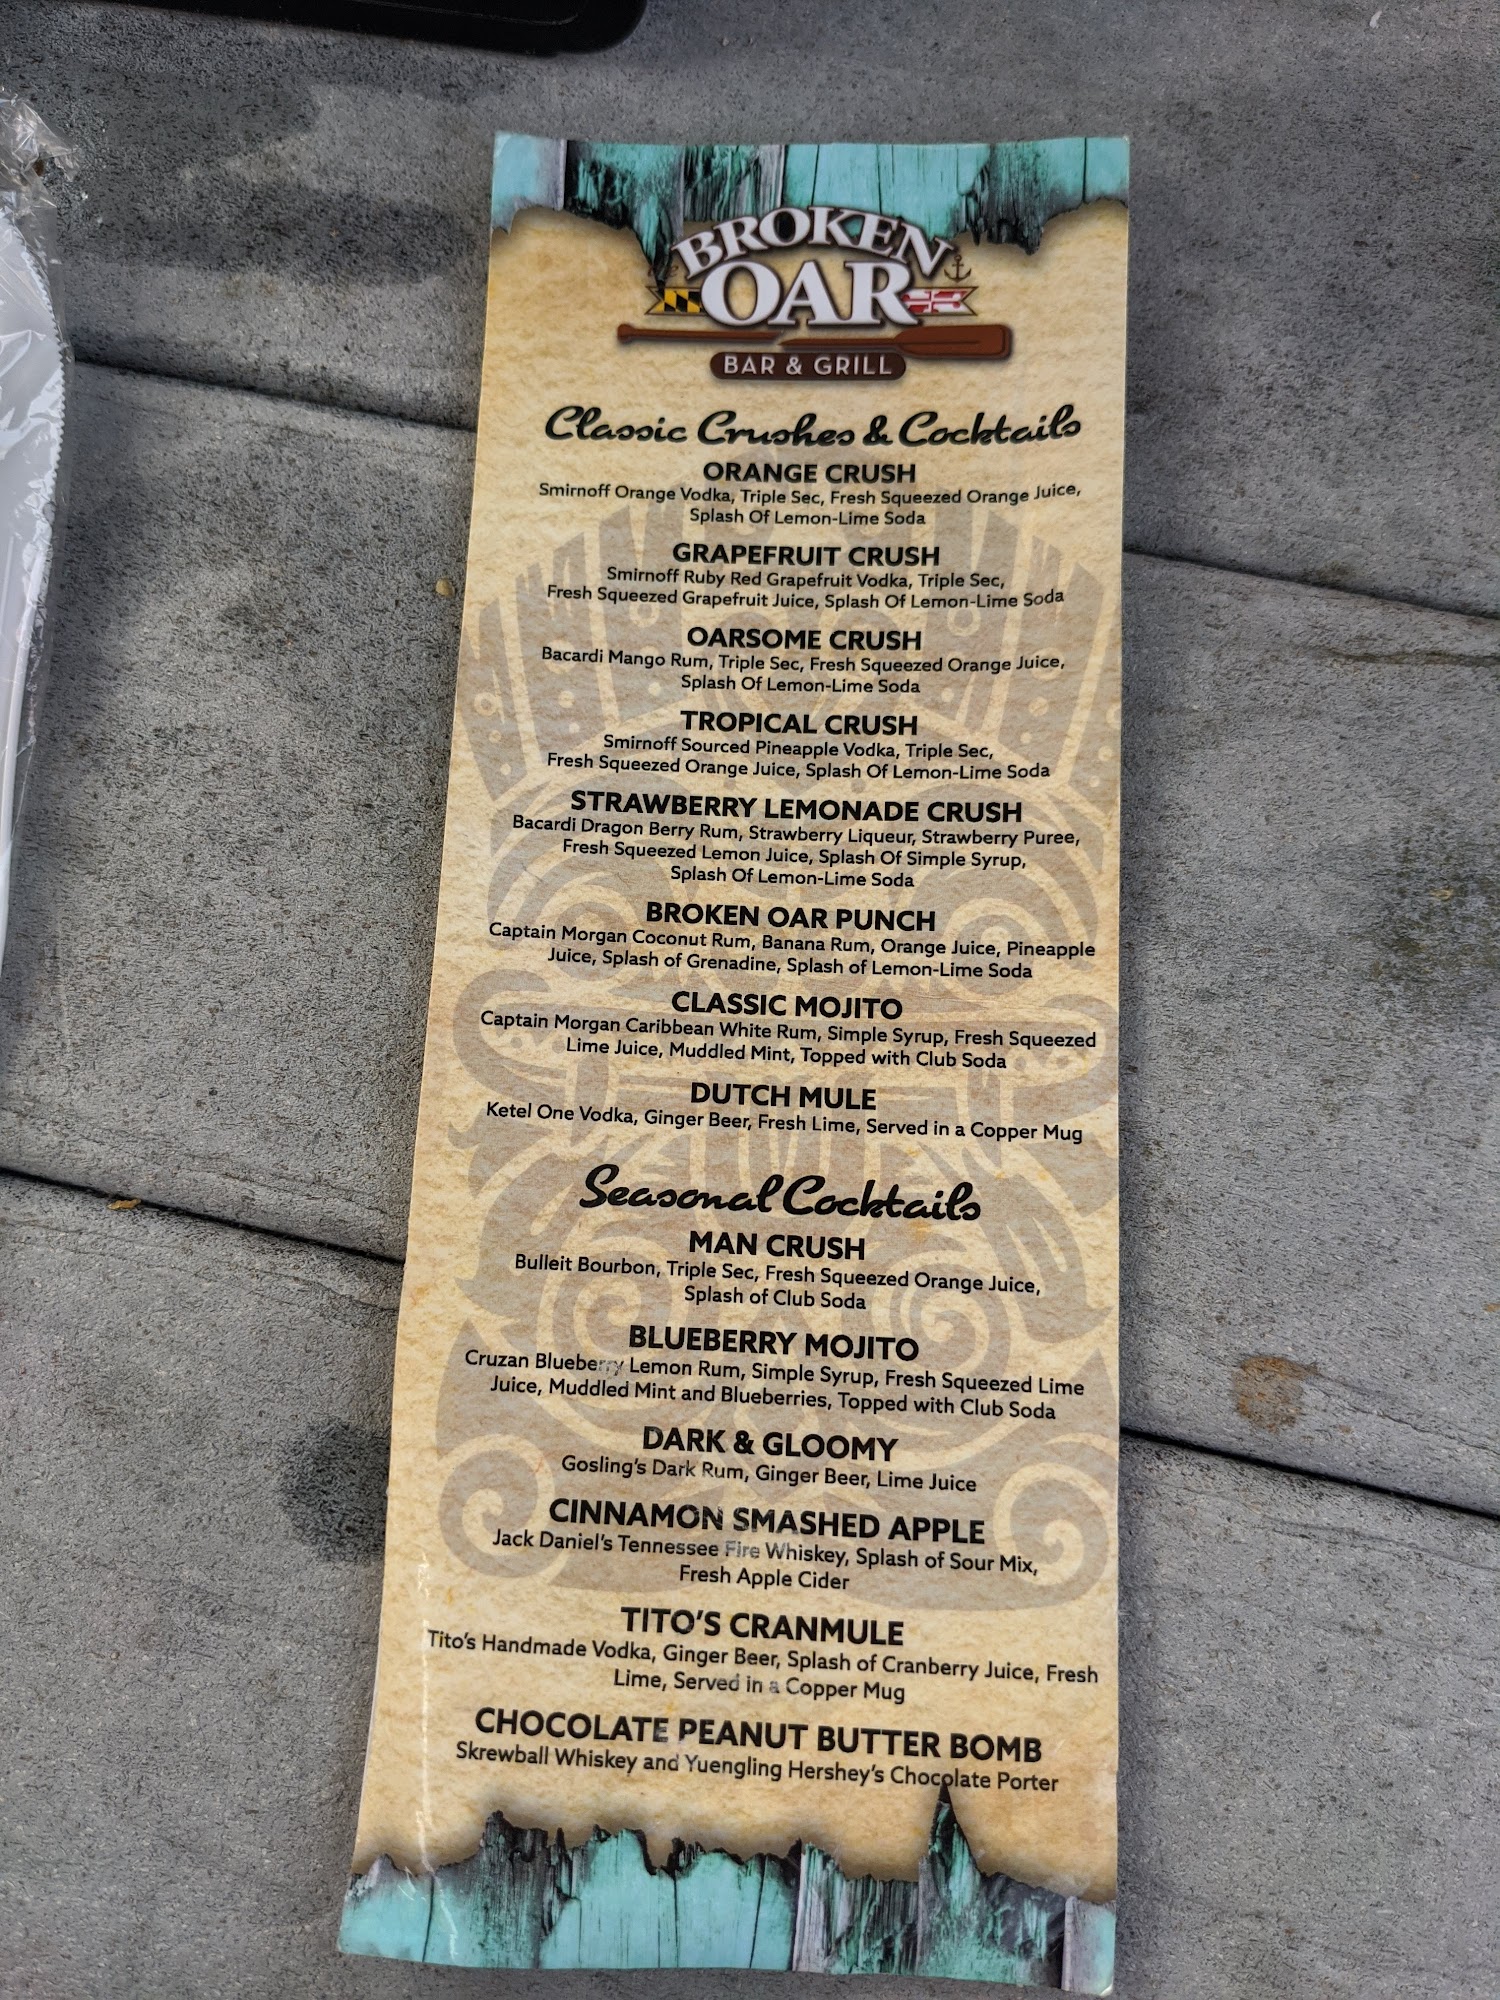 the
BROKEN
OAR
BAR & GRILL
Classic Crushes & Cocktails
ORANGE CRUSH
Smirnoff Orange Vodka, Triple Sec, Fresh Squeezed Orange Juice,
Splash Of Lemon-Lime Soda
GRAPEFRUIT CRUSH
Smirnoff Ruby Red Grapefruit Vodka, Triple Sec,
Fresh Squeezed Grapefruit Juice, Splash Of Lemon-Lime Soda
OARSOME CRUSH
Bacardi Mango Rum, Triple Sec, Fresh Squeezed Orange Juice,
Splash Of Lemon-Lime Soda
TROPICAL CRUSH
Smirnoff Sourced Pineapple Vodka, Triple Sec,
Fresh Squeezed Orange Juice, Splash Of Lemon-Lime Soda
STRAWBERRY LEMONADE CRUSH
Bacardi Dragon Berry Rum, Strawberry Liqueur, Strawberry Puree,
Fresh Squeezed Lemon Juice, Splash Of Simple Syrup,
Splash Of Lemon-Lime Soda
BROKEN OAR PUNCH
Captain Morgan Coconut Rum, Banana Rum, Orange Juice, Pineapple
Juice, Splash of Grenadine, Splash of Lemon-Lime Soda
CLASSIC MOJITO
Captain Morgan Caribbean White Rum, Simple Syrup, Fresh Squeezed
Lime Juice, Muddled Mint, Topped with Club Soda
DUTCH MULE
Ketel One Vodka, Ginger Beer, Fresh Lime, Served in a Copper Mug
Seasonal Cocktails
MAN CRUSH
Bulleit Bourbon, Triple Sec, Fresh Squeezed Orange Juice,
Splash of Club Soda
BLUEBERRY MOJITO
Cruzan Blueberry Lemon Rum, Simple Syrup, Fresh Squeezed Lime
Juice, Muddled Mint and Blueberries, Topped with Club Soda
DARK & GLOOMY
Gosling's Dark Rum, Ginger Beer, Lime Juice
CINNAMON SMASHED APPLE
Jack Daniel's Tennessee Fire Whiskey, Splash of Sour Mix,
Fresh Apple Cider
TITO'S CRANMULE
Tito's Handmade Vodka, Ginger Beer, Splash of Cranberry Juice, Fresh
Lime, Served in a Copper Mug
CHOCOLATE PEANUT BUTTER BOMB
Skrewball Whiskey and Yuengling Hershey's Chocolate Porter